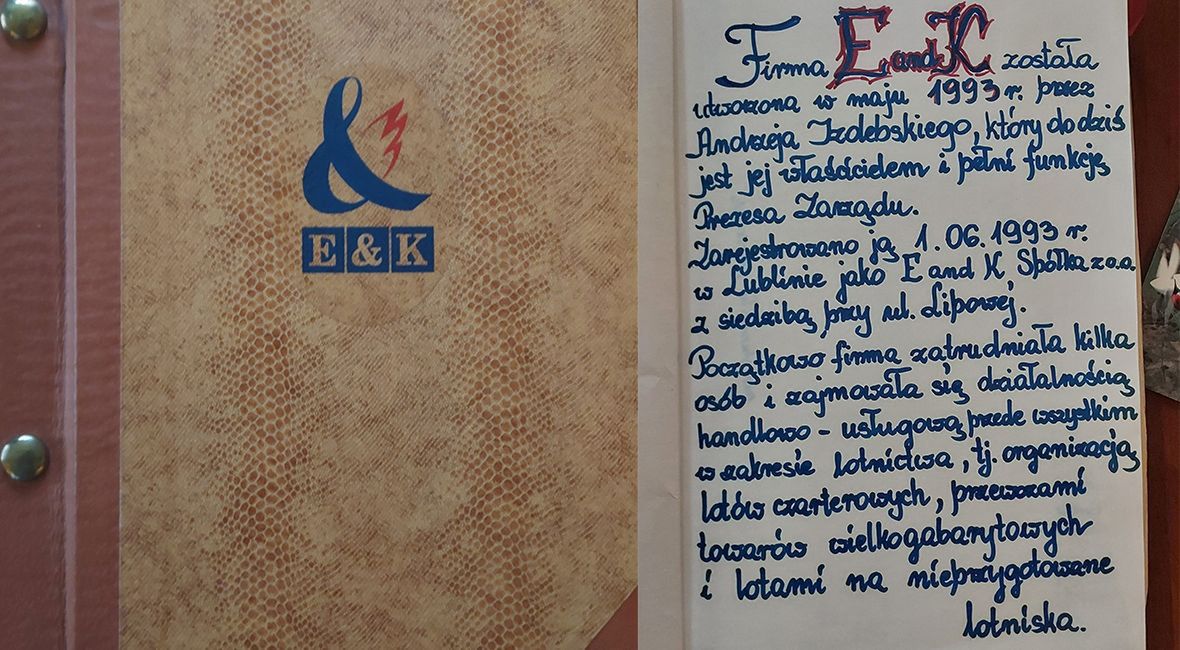 &
E & K
Firma E and K została
utworzona w maju 1993 r. przez
Andrzeja Izdebskiego, który do dziś
jest jej właścicielem i pełni funkcję
Prezesa Zarządu.
Zarejestrowano ją 1.06.1993 r.
w Lublinie jako E and K Spółka z o.o.
z siedzibą przy ul. Lipowej.
Początkowo firma zatrudniała kilka
osób i zajmowała się działalnością
handlowo - usługową przede wszystkim
w zakresie lotnictwa, tj. organizacją
lotów czarterowych, przewozami
towarów wielkogabarytowych
i lotami na nieprzygotowane
lotniska.